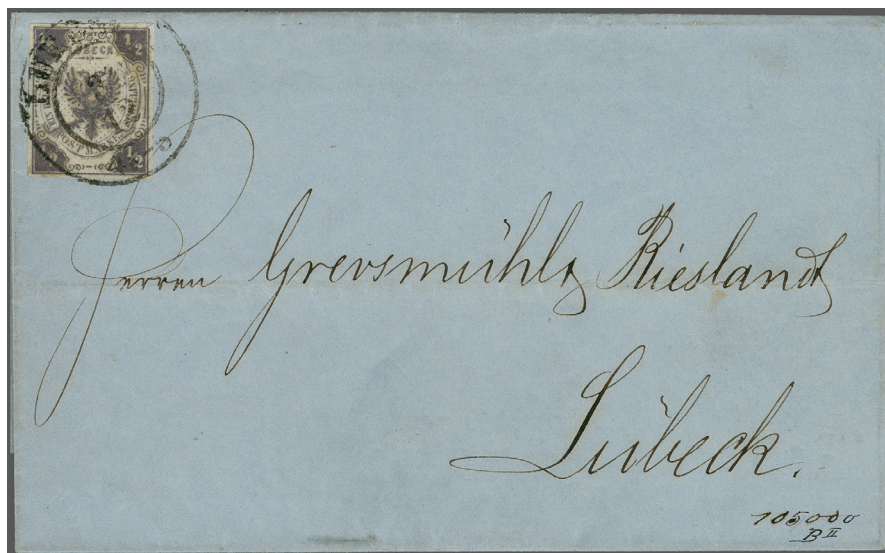 ½ LUEBECK ½
POSTMARKE
½
Herren Grevsmühl & Rieslandt
Lübeck.
105000
B II